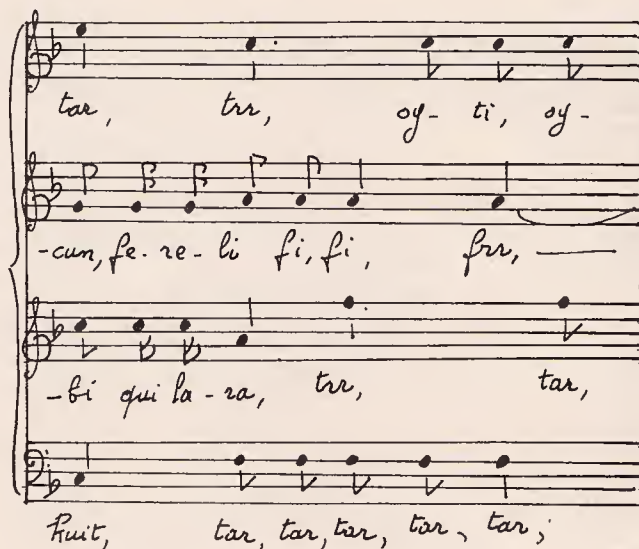 tar, trr, oy- ti, oy-
-cun, fe-re-li fi, fi, frr, —
-bi qui la-ra, trr, tar,
huit, tar, tar, tar, tar, tar;